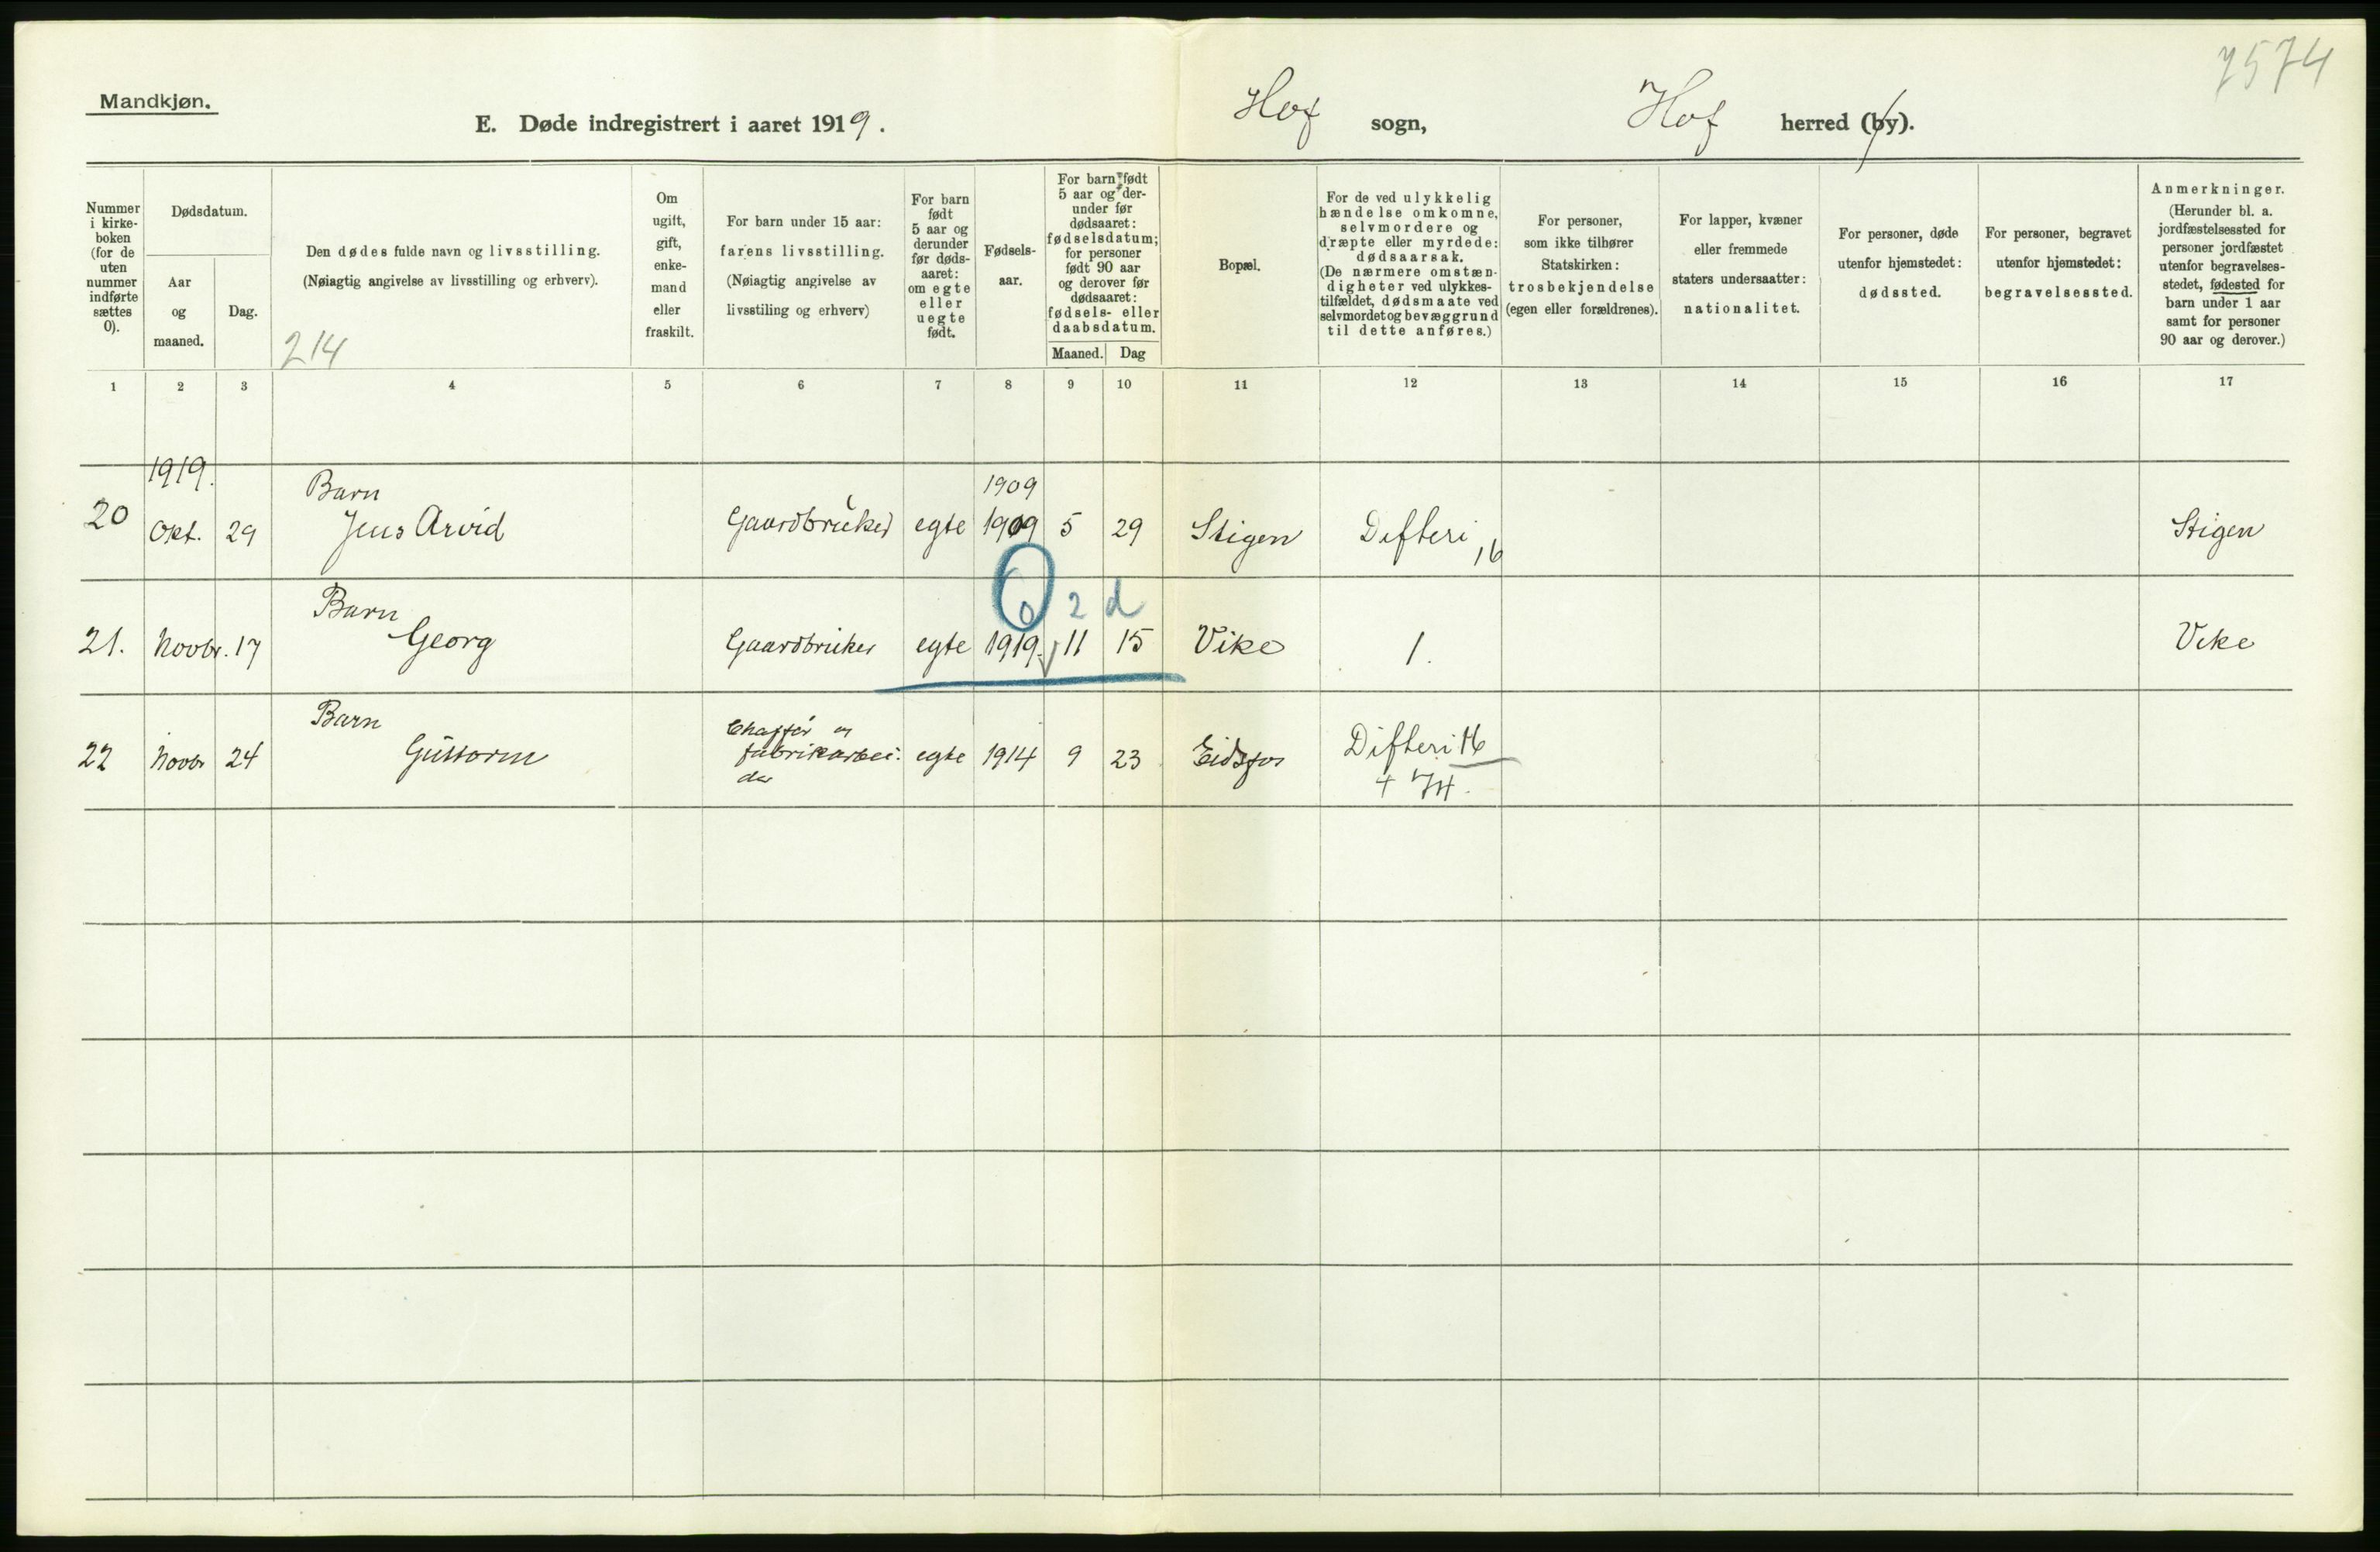 7574
Mandkjøn.
E. Døde indregistrert i aaret 1919.
Hof sogn,
Hof herred (by).
Nummer i kirke-boken (for de uten nummer indførte sættes 0).
Dødsdatum.
Aar og maaned.
Dag.
Den dødes fulde navn og livsstilling.
(Nøiagtig angivelse av livsstilling og erhverv).
214
Om ugift, gift, enke-mand eller fraskilt.
For barn under 15 aar:
farens livsstilling.
(Nøiagtig angivelse av
livsstiling og erhverv)
For barn født 5 aar og derunder før døds-aaret: om egte eller uegte født.
Fødsels-aar.
For barn født 5 aar og der-under før dødsaaret: fødselsdatum; for personer født 90 aar og derover før dødsaaret: fødsels- eller daabsdatum.
Maaned. Dag
Bopæl.
For de ved ulykkelig hændelse omkomne, selvmordere og dræpte eller myrdede: dødsaarsak.
(De nærmere omstæn-digheter ved ulykkes-tilfældet, dødsmaate ved selvmordet og bevæggrund til dette anføres.)
For personer, som ikke tilhører Statskirken: trosbekjendelse (egen eller forældrenes).
For lapper, kvæner eller fremmede staters undersaatter: nationalitet.
For personer, døde utenfor hjemstedet: dødssted.
For personer, begravet utenfor hjemstedet: begravelsessted.
Anmerkninger.
(Herunder bl. a. jordfæstelsessted for personer jordfæstet utenfor begravelses-stedet, fødested for barn under 1 aar samt for personer 90 aar og derover.)
1 2 3 4 5 6 7 8 9 10 11 12 13 14 15 16 17
1919.
Barn
1909
20 Okt. 29 Jens Arvid Gaardbruker egte 1909 5 29 Stigen Difteri 16 Stigen
0 2 d
Barn
21. Novbr. 17 Georg Gaardbruker egte 1919 11 15 Vike 1. Vike
Barn
22 Novbr 24 Guttorm Chaffør og fabrikarbei: der egte 1914 9 23 Eidsfos Difteri 16
+ 74.